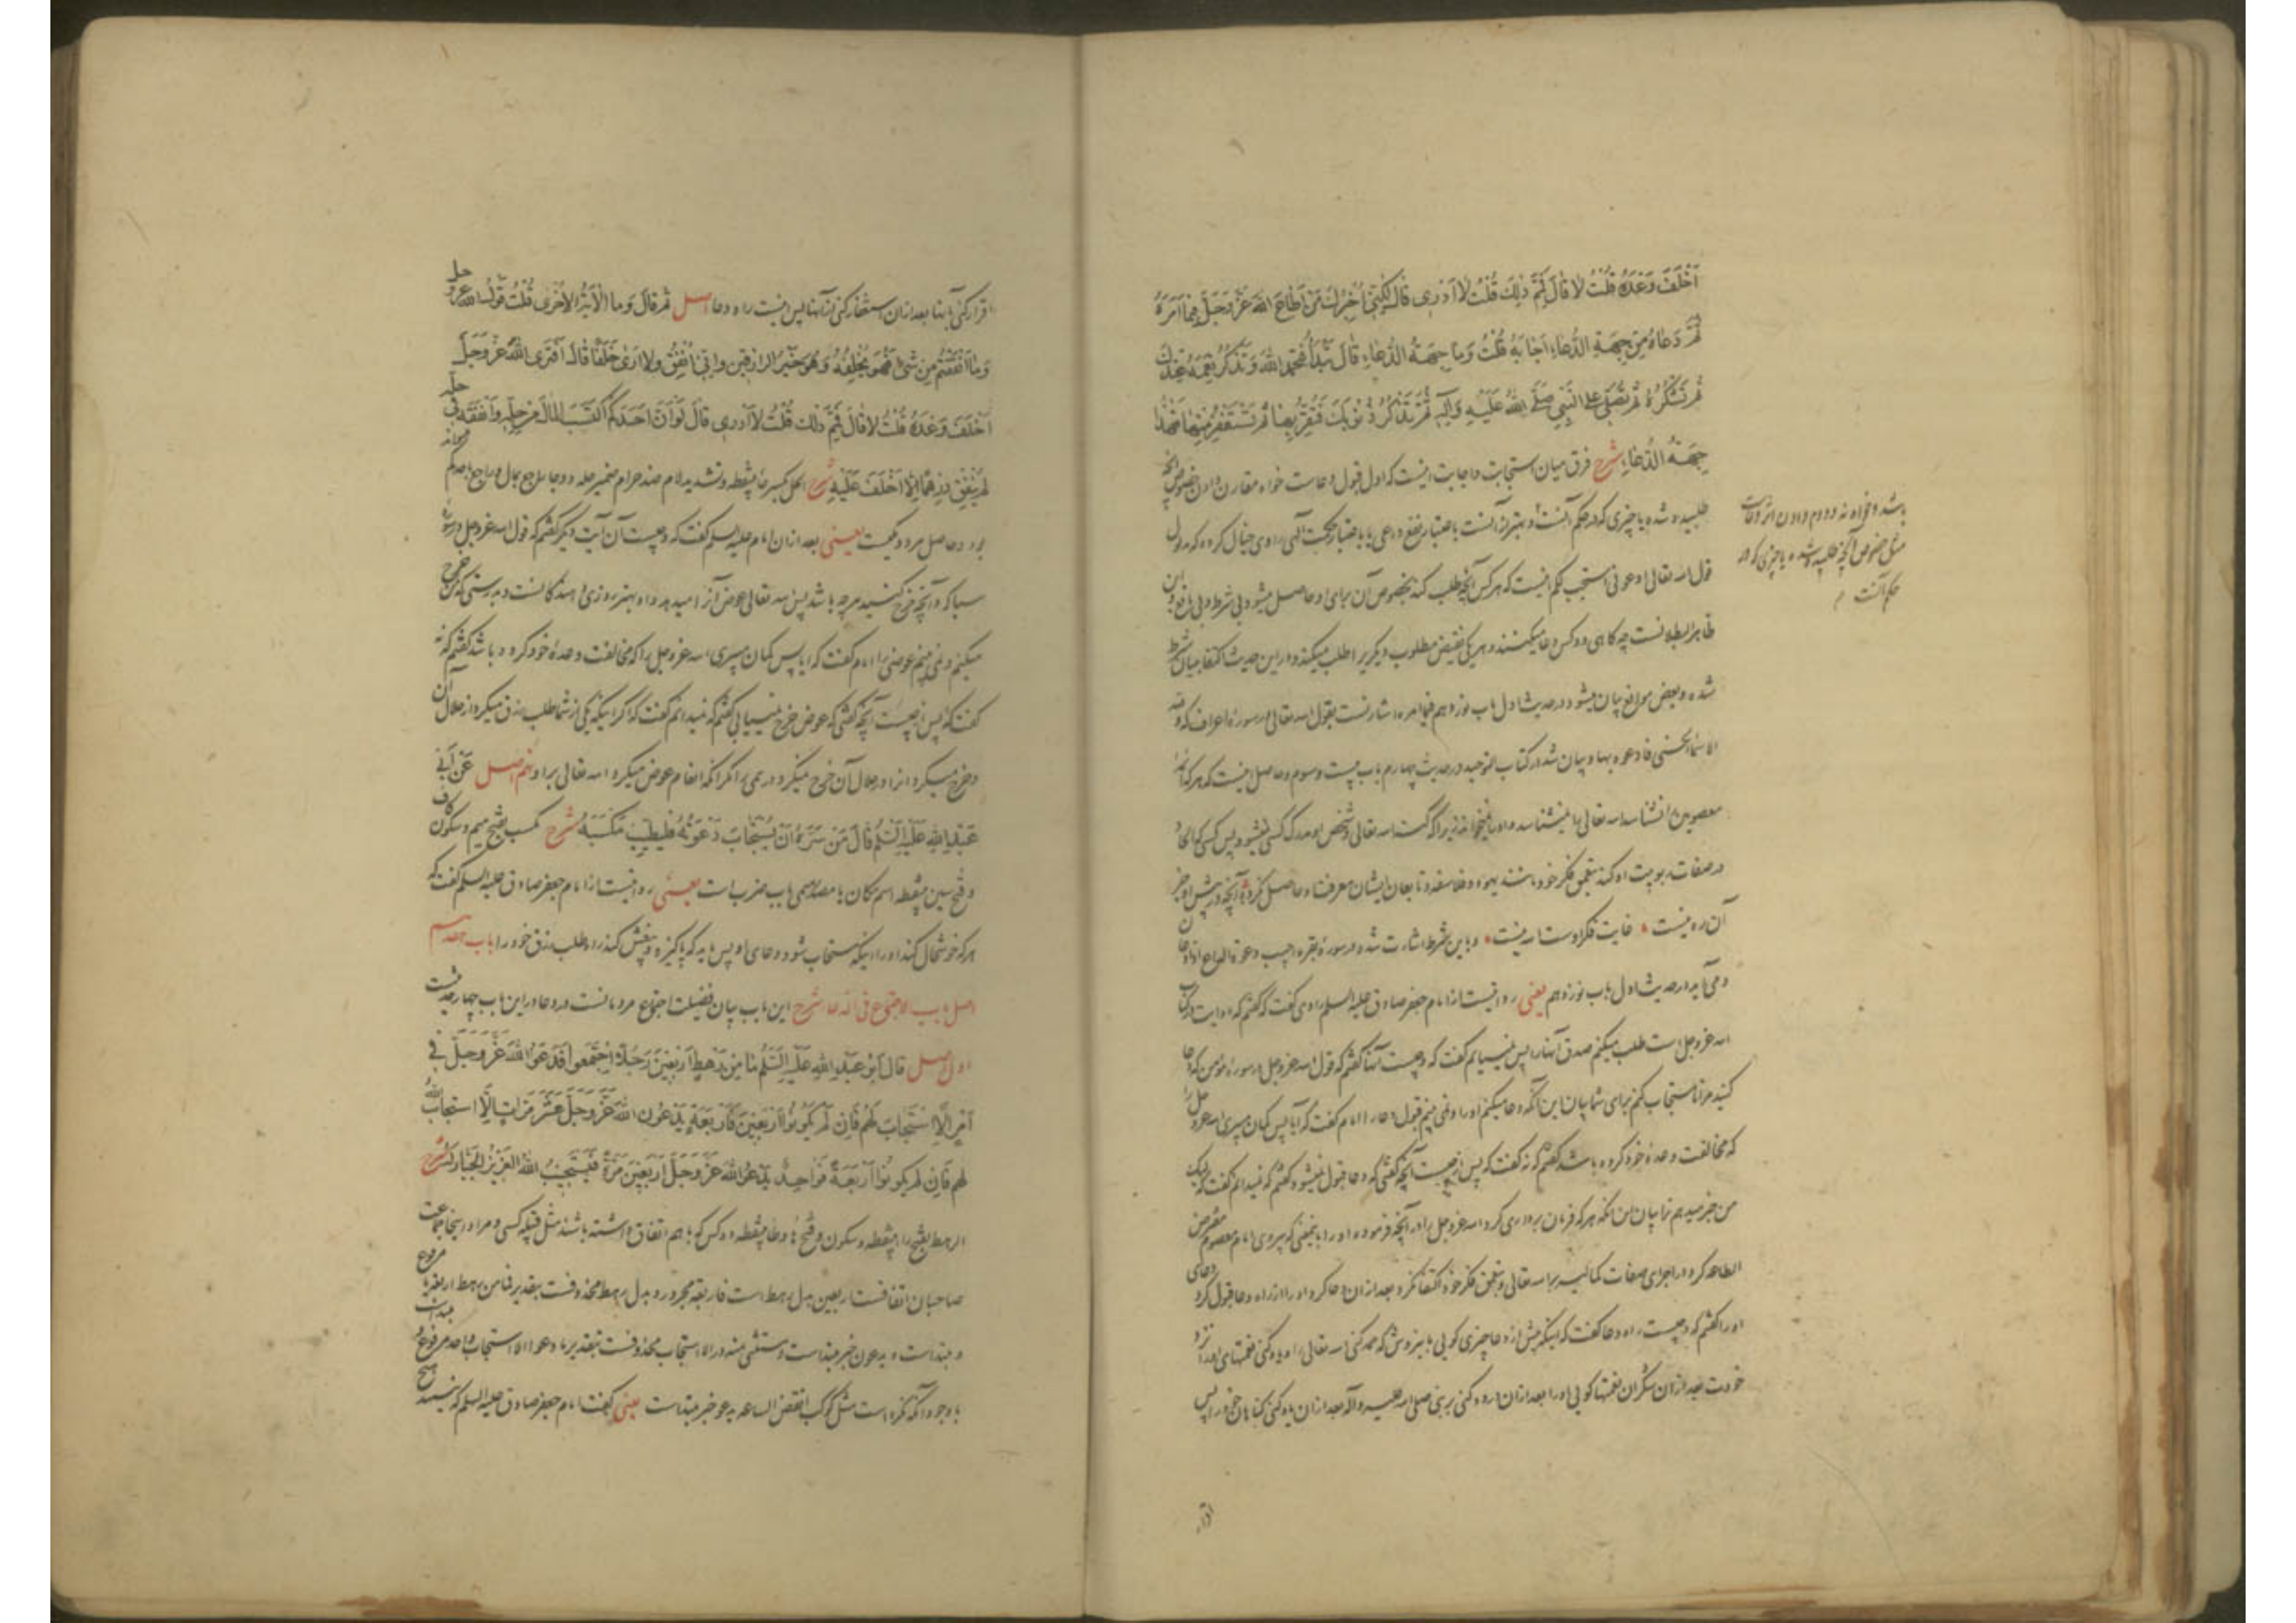 اَخْلَفَ وَعْدَهُ قُلْتُ لا قالَ فَمِمَّ ذلِكَ قُلْتُ لا اَدْرِی قالَ لٰكِنّی اُخْبِرُكَ مَنْ اَطاعَ اللهَ عَزَّ وَجَلَّ فیما اَمَرَهُ
ثُمَّ دَعاهُ مِنْ جِهَةِ الدُّعاءِ اَجابَهُ قُلْتُ وَما جِهَةُ الدُّعاءِ قالَ تَبْدَأُ فَتَحْمَدُ اللهَ وَتَذْكُرُ نِعَمَهُ عِنْدَكَ
ثُمَّ تَشْكُرُهُ ثُمَّ تُصَلّی عَلَی النَّبِیِّ صَلَّی اللهُ عَلَیْهِ وَآلِهِ ثُمَّ تَذْكُرُ ذُنُوبَكَ فَتُقِرُّ بِها ثُمَّ تَسْتَغْفِرُ مِنْها فَهٰذا
جِهَةُ الدُّعاءِ شرح فرق میان استجابت و اجابت اینست که اول قبول دعاست خواه مقارن دادن خصوص آنچه
طلبیده شده یا چیزی که در حکم آنست و بهتر از آنست باعتبار نفع داعی یا باعتبار حکمت الهی راوی خیال کرده که مدلول
باشد و خواه نه و دوم دادن اثر دعاست
مثل خصوص آنچه طلبیده شده یا چیزی که در
حکم آنست
قول الله تعالی ادعونی استجب لکم اینست که هر کس آنچه طلب کند بخصوص آن برای او حاصل میشود بی شرط و بی مانع و این
ظاهر البطلانست چه کاهی دو کس دعا میکنند و هر یکی نقیض مطلوب دیگری را طلب میکند و در این حدیث اکتفا ببیان شرط
شده و بعض موانع بیان میشود در حدیث اول باب نوزدهم فیما امره اشارتست بقول الله تعالی در سورهٔ اعراف که ولله
الاسماء الحسنی فادعوه بها و بیان شد در کتاب التوحید در حدیث چهارم باب بیست و سوم و حاصل اینست که هر که ائمهٔ
معصومین را نشناسد الله تعالی را نمیشناسد و او را نمیخواند زیرا که الله تعالی بشخص او مدرک کسی نمیشود پس کسی که الحاد
در صفات ربوبیت او کند بتعمق فکر خود مانند یهود و فلاسفه و تابعان ایشان معرفت او حاصل نکرده آنچه در پیش او جز
آن ره نیست غایت فکر اوست الله نیست و باین شرط اشارت شده در سورهٔ بقره اجیب دعوة الداع اذا دعان
و می‌آید در حدیث اول باب نوزدهم یعنی روایتست از امام جعفر صادق علیه السلم راوی گفت که گفتم که دو آیت در کتاب
الله عزوجل است طلب میکنم صدق آنها را پس نمییابم گفت که و چیست آنها گفتم که قول الله عزوجل در سورهٔ مؤمن که دعا
کنید مرا تا مستجاب کنم برای شما بیان این آنکه دعا میکنم او را و نمی بینم قبول دعا را امام گفت که آیا پس کمان میبری الله عزوجل را
که مخالفت وعدهٔ خود کرده باشد گفتم که نه گفت که پس از چیست آنچه گفتی که دعا قبول نمیشود گفتم که نمیدانم گفت که لیک
من خبر میدهم ترا بیان این آنکه هر که فرمان برداری کرد الله عزوجل را در آنچه فرموده او را باینمعنی که پیروی امام معصوم مفترض
الطاعه کرد در اجرای صفات کمالیه بر الله تعالی و بتعمق فکر خود اکتفا نکرد بعد از آن دعا کرد او را از راه دعا قبول کرد دعای
او را گفتم که و چیست راه دعا گفت که اینکه پیش از دعا چیزی گویی باین روش که حمد کنی الله تعالی را و یاد کنی نعمتهای او را نزد
خودت بعد از آن شکر آن نعمتها گویی او را بعد از آن درود کنی بر نبی صلی الله علیه وآله بعد از آن یاد کنی گناهان خود را پس
اقرار
اقرار کنی بآنها بعد از آن استغفار کنی از آنها پس اینست راه دعا اصل ثُمَّ قالَ وَما الْآیَةُ الْاُخْری قُلْتُ قَوْلُ اللهِ عَزَّ وَجَلَّ
وَما اَنْفَقْتُمْ مِنْ شَیْءٍ فَهُوَ یُخْلِفُهُ وَهُوَ خَیْرُ الرّازِقینَ وَاِنّی اُنْفِقُ وَلا اَری خَلَفًا قالَ اَفَتَرَی اللهَ عَزَّ وَجَلَّ
اَخْلَفَ وَعْدَهُ قُلْتُ لا قالَ فَمِمَّ ذٰلِكَ قُلْتُ لا اَدْرِی قالَ لَوْ اَنَّ اَحَدَكُمْ اكْتَسَبَ الْمالَ مِنْ حِلِّهِ وَاَنْفَقَهُ فی حِلِّهِ
لَمْ یُنْفِقْ دِرْهَمًا اِلّا اُخْلِفَ عَلَیْهِ شرح الحل بکسر حاء بینقطه و تشدید لام ضد حرام ضمیر حله در دو جا راجع بمال و راجع باحدکم
بود و حاصل هر دو یکیست یعنی بعد از آن امام علیه السلم گفت که و چیست آن آیت دیگر گفتم که قول الله عزوجل در سوره
سبا که و آنچه خرج کنید هر چه باشد پس الله تعالی عوض آن را میدهد و او بهترین روزی دهندگانست و بدرستی که من خرج
میکنم و نمی بینم عوضی را امام گفت که آیا پس کمان میبری الله عزوجل را که مخالفت وعدهٔ خود کرده باشد گفتم که نه
گفت که پس از چیست آنچه گفتی که عوض خرج نمییابی گفتم که نمیدانم گفت که اگر اینکه یکی از شما طلب رزق میکرد از حلال آن
و خرج میکرد آنرا در حلال آن خرج نمیکرد درهمی را مگر آنکه انعام عوض میکرد الله تعالی بر او نهم اصل عَنْ اَبی
عَبْدِ اللهِ عَلَیْهِ السَّلَمُ قالَ مَنْ سَرَّهُ اَنْ یُسْتَجابَ دَعْوَتُهُ فَلْیُطَیِّبْ مَكْسَبَهُ شرح مکسب بفتح میم و سکون کاف
و فتح سین بینقطه اسم مکان یا مصدر میمی باب ضرب است یعنی روایتست از امام جعفر صادق علیه السلم گفت که
هر که خوشحال کند او را اینکه مستجاب شود دعای او پس باید که پاکیزه و بیغش کند راه طلب رزق خود را باب هفدهم
اصل باب الاجتماع فی الدعاء شرح این باب بیان فضیلت اجتماع مردمانست در دعا در این باب چهار حدیث است
اول اصل قالَ اَبُو عَبْدِ اللهِ عَلَیْهِ السَّلَمُ ما مِنْ رَهْطٍ اَرْبَعینَ رَجُلًا اجْتَمَعُوا فَدَعَوُا اللهَ عَزَّ وَجَلَّ فی
اَمْرٍ اِلَّا اسْتَجابَ لَهُمْ فَاِنْ لَمْ یَكُونُوا اَرْبَعینَ فَاَرْبَعَةٌ یَدْعُونَ اللهَ عَزَّ وَجَلَّ عَشْرَ مَرّاتٍ اِلَّا اسْتَجابَ اللهُ
لَهُمْ فَاِنْ لَمْ یَكُونُوا اَرْبَعَةً فَواحِدٌ یَدْعُو اللهَ عَزَّ وَجَلَّ اَرْبَعینَ مَرَّةً فَیَسْتَجیبُ اللهُ الْعَزیزُ الْجَبّارُ لَهُ شرح
الرهط بفتح راء بینقطه و سکون و فتح هاء و طاء بینقطه ده کس که باهم اتفاق داشته باشند مثل قبیله کسی و مراد اینجا جماعت
صاحبان اتفاقست اربعین بدل رهط است فاربعة مجرور و بدل رهط محذوفست بتقدیر فما من رهط اربعة یا مرفوع
و مبتداست و یدعون خبر مبتداست و مستثنی منه در الا استجاب محذوفست بتقدیر ما دعوا الا استجاب واحد مرفوع و مبتداست
باوجود آنکه نکره است مثل کوکب انقض الساعه یدعو خبر مبتداست یعنی گفت امام جعفر صادق علیه السلم که نیست هیچ